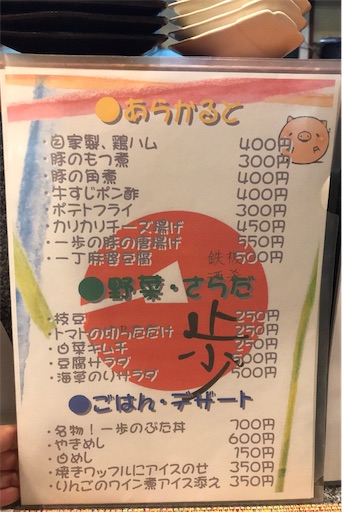 ●あらかると
・自家製、鶏ハム 400円
・豚のもつ煮 300円
・豚の角煮 400円
・牛すじポン酢 400円
・ポテトフライ 300円
・カリカリチーズ揚げ 450円
・一歩の豚の唐揚げ 550円
・一丁麻婆豆腐 500円
鉄板
●野菜・さらだ
・枝豆 250円
・トマトの切っただけ 250円
・白菜キムチ 250円
・豆腐サラダ 500円
・海藻のりサラダ 500円
歩
●ごはん・デザート
・名物!一歩のぶた丼 700円
・やきめし 600円
・白めし 150円
・焼きワッフルにアイスのせ 350円
・りんごのワイン煮アイス添え 350円